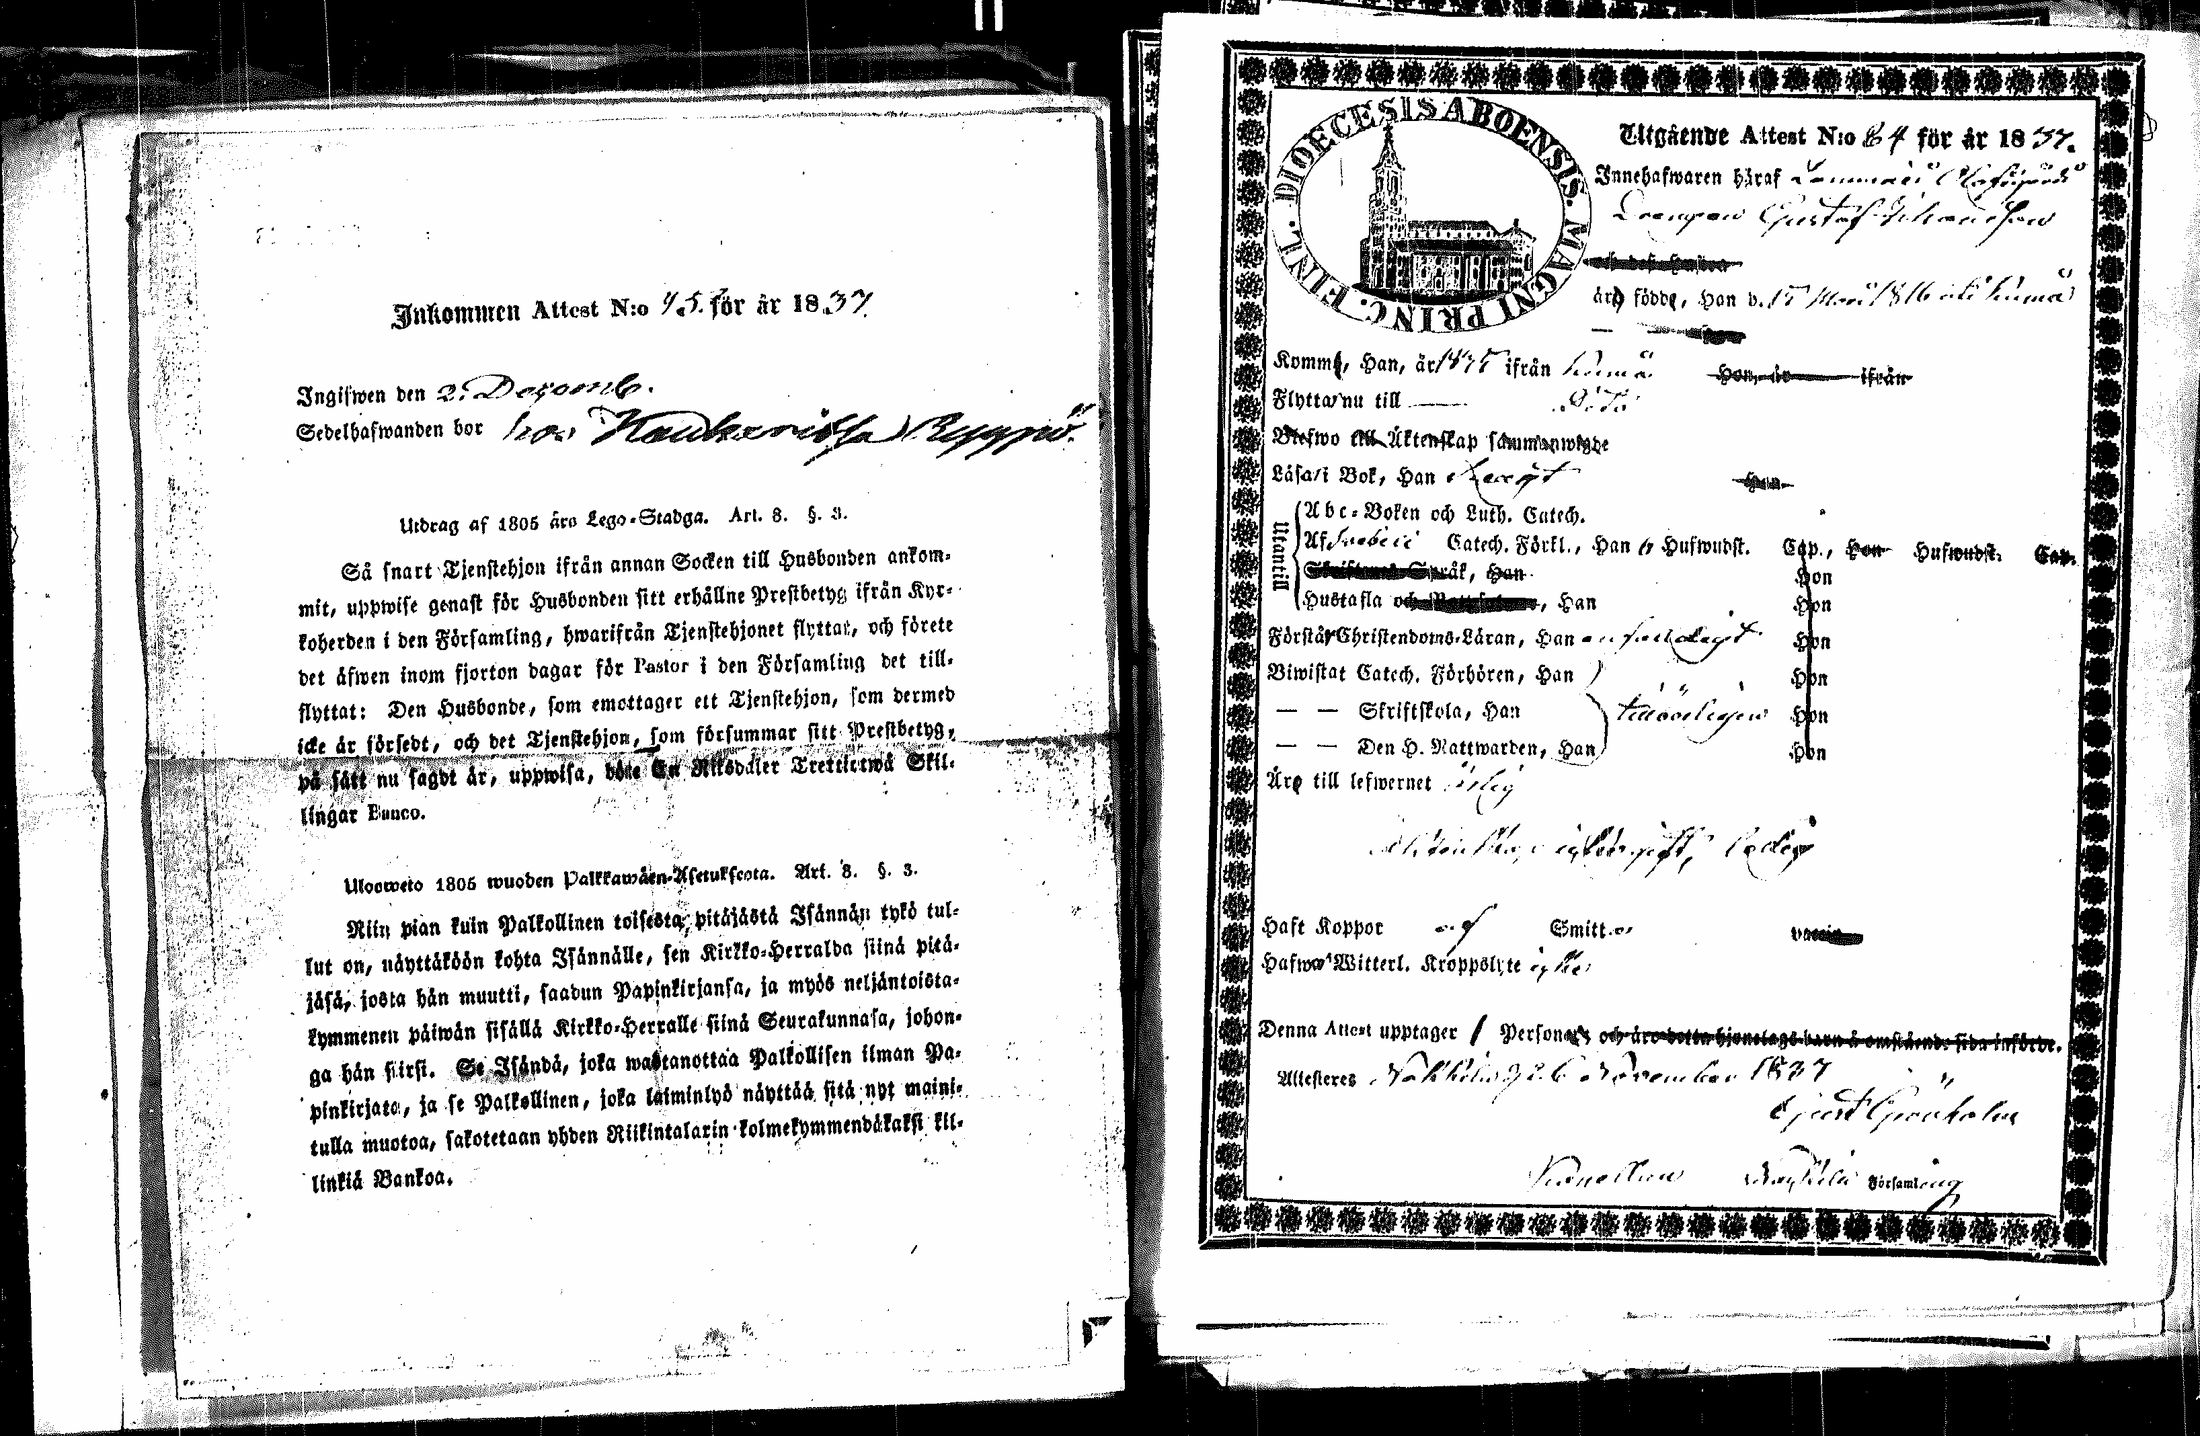 Inkommen Attest N:o 45. för år 1837.
Ingifwen den 2. Decemb.
Sedelhafwanden bor hos
Utdrag af 1805 års Lego-Stadga. Art. 8. §. 3.
Så snart Tjenstehjon ifrån annan Socken till Husbonden ankom-
mit, uppwise genast för Husbonden sitt erhållne Prestbetyg ifrån Kyr-
koherden i den Församling, hwarifrån Tjenstehjonet flyttat, och förete
det äfwen inom fjorton dagar för Pastor i den Församling det till-
flyttat: Den Husbonde, som emottager ett Tjenstehjon, som dermed
icke är försedt, och det Tjenstehjon, som försummar sitt Prestbetyg,
på sätt nu sagdt är, uppwisa, böte En Riksdaler Trettiotwå Skil-
lingar Banco.
Ulosweto 1805 wuoden Palkkawäen-Asetuksesta. Art. 8. §. 3.
Niin pian kuin Palkollinen toisesta pitäjästä Isännän tykö tul-
lut on, näyttäköön kohta Isännälle, sen Kirkko-Herralda siinä pitä-
jäsä, josta hän muutti, saadun Papinkirjansa, ja myös neljäntoista-
kymmenen päiwän sisällä Kirkko-Herralle siinä Seurakunnasa, johon-
ga hän siirsi. Se Isändä, joka wastanottaa Palkollisen ilman Pa-
pinkirjata, ja se Palkollinen, joka laiminlyö näyttää sitä nyt maini-
tulla muotoa, sakotetaan yhden Riikintalarin kolmekymmendäkaksi kil-
linkiä Bankoa.
DIOECESIS ABOENSIS. MAGNI PRINC. FINL.
Utgående Attest N:o 84 för år 1837.
Innehafwaren häraf
Drengen Gustaf Johansson
äro födde, Han d. 15 1816 i Kumo
Komme, Han, år 1835 ifrån Kumo Hon, år ifrån
Flyttar nu till
Blefwo till Äktenskap sammanwigde
Läsa i Bok, Han Hon
Utantill
Abc-Boken och Luth. Catech.
Af Svebelii Catech. Förkl., Han 4 Hufwudst. Cap., Hon Hufwudst. Cap.
Skriftenes Språk, Han Hon
Hustafla och, Han Hon
Förstår Christendoms-Läran, Han enfaldigt Hon
Biwistat Catech. Förhören, Han Hon
— — Skriftskola, Han tillbörligen Hon
— — Den H. Nattwarden, Han Hon
Äro till lefwernet ärlig
ledig
Haft Koppor af Smitt.
Hafwa Witterl. Kroppslyte icke
Denna Attest upptager 1 Person och äro detta hjonelags barn å omstående sida införde.
Attesteres Nakkila d. 26 November 1837
Grönholm
Nakkila Församling